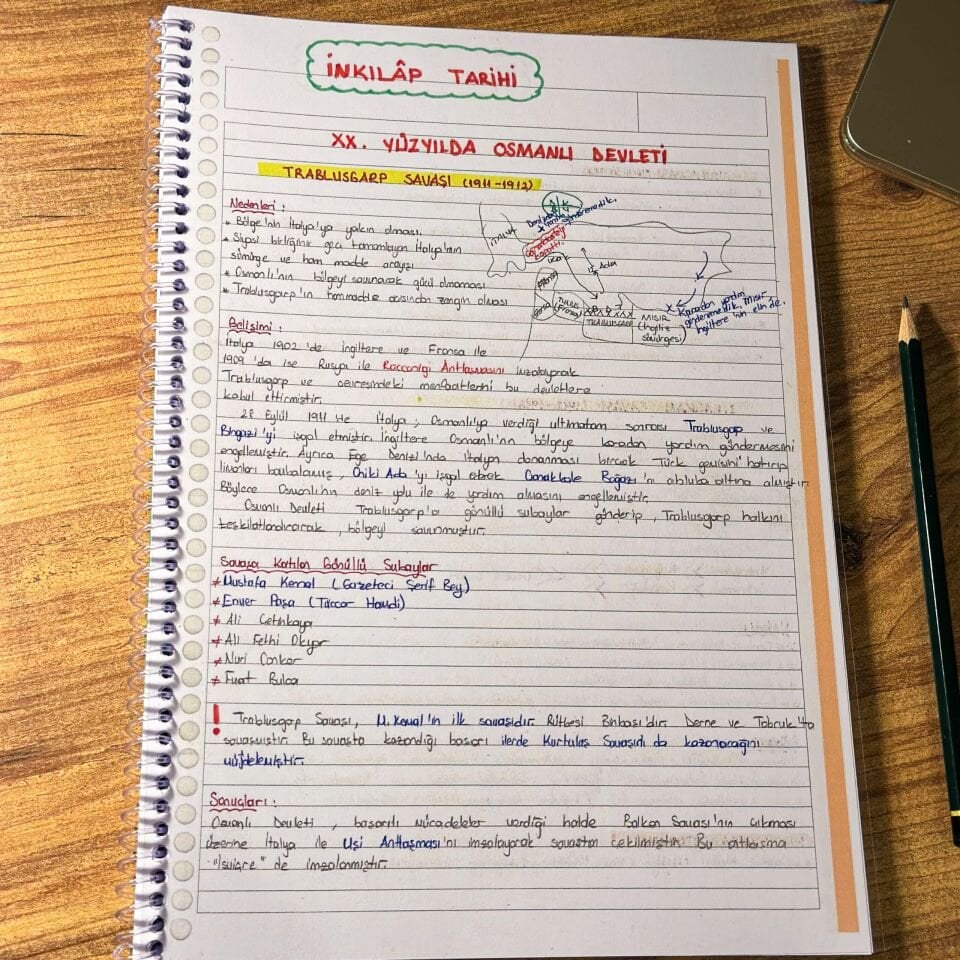 İNKILÂP TARİHİ
XX. YÜZYILDA OSMANLI DEVLETİ
TRABLUSGARP SAVAŞI (1911-1912)
Nedenleri :
* Bölge'nin İtalya'ya yakın olması.
* Siyasi birliğini geç tamamlayan İtalya'nın
sömürge ve ham madde arayışı
* Osmanlı'nın bölgeyi savunacak gücü olmaması
* Trablusgarp'ın hammadde açısından zengin olması
İTALYA
Uçak
12 Ada
Fransa
TUNUS
(Fransa)
TRABLUSGARP
MISIR
(İngiliz
Sömürgesi)
x Karadan yardım
gönderemedik. Mısır
İngiltere'nin elinde.
Gelişimi :
İtalya 1902'de İngiltere ve Fransa ile
1909'da ise Rusya ile Racconigi Antlaşmasını imzalayarak
Trablusgarp ve çevresindeki menfaatlerini bu devletlere
kabul ettirmiştir.
28 Eylül 1911'de İtalya, Osmanlı'ya verdiği ultimatom sonrası Trablusgarp ve
Bingazi'yi işgal etmiştir. İngiltere Osmanlı'nın bölgeye karadan yardım göndermesini
engellemiştir. Ayrıca Ege Denizi'nde İtalyan donanması birçok Türk gemisini batırıp
limanları bombalamış, Oniki Ada'yı işgal ederek Çanakkale Boğazı'nı abluka altına almıştır.
Böylece Osmanlı'nın deniz yolu ile de yardım almasını engellemiştir.
Osmanlı Devleti Trablusgarp'a gönüllü subaylar gönderip, Trablusgarp halkını
teşkilatlandırarak, bölgeyi savunmuştur.
Savaşa Katılan Gönüllü Subaylar
* Mustafa Kemal (Gazeteci Şerif Bey)
* Enver Paşa (Tüccar Hamdi)
* Ali Çetinkaya
* Ali Fethi Okyar
* Nuri Conker
* Fuat Bulca
! Trablusgarp Savaşı, M.Kemal'in ilk savaşıdır. Rütbesi Binbaşı'dır. Derne ve Tobruk'ta
savaşmıştır. Bu savaşta kazandığı başarı ilerde Kurtuluş Savaşı'da kazanacağını
müjdelemiştir.
Sonuçları :
Osmanlı Devleti, başarılı mücadeleler verdiği halde Balkan Savaşı'nın çıkması
üzerine İtalya ile Uşi Antlaşması'nı imzalayarak savaştan çekilmiştir. Bu antlaşma
"İsviçre" de imzalanmıştır.